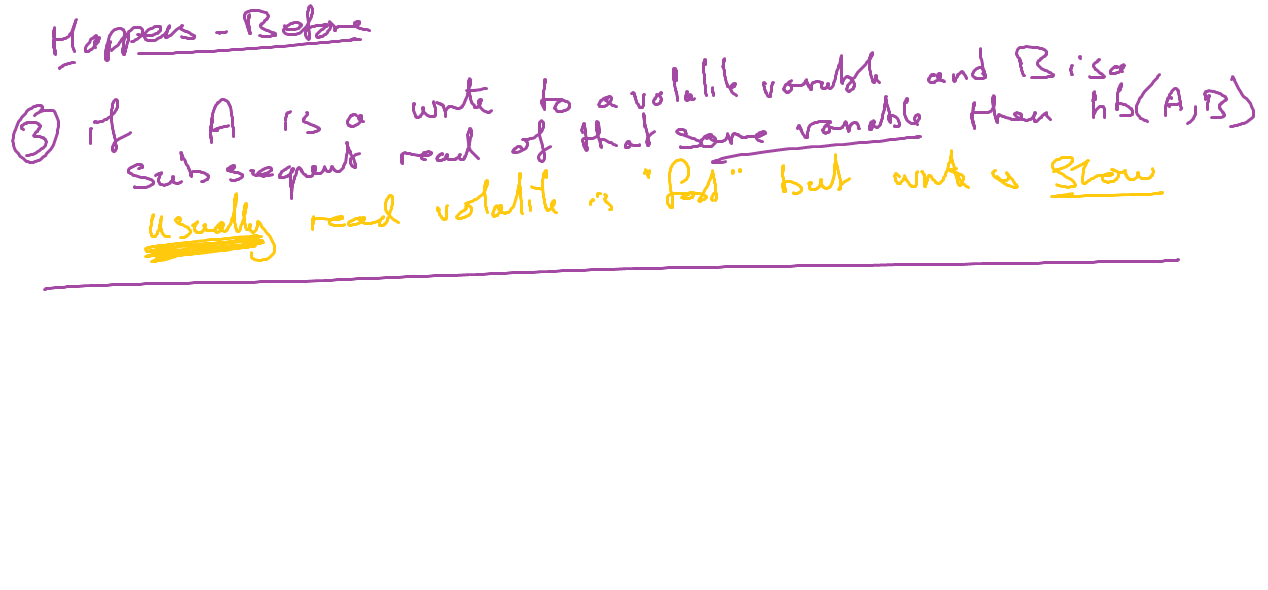 Happens - Before
③ if A is a write to a volatile variable and B is a
subsequent read of that same variable then hb(A,B)
usually read volatile is "fast" but write is slow